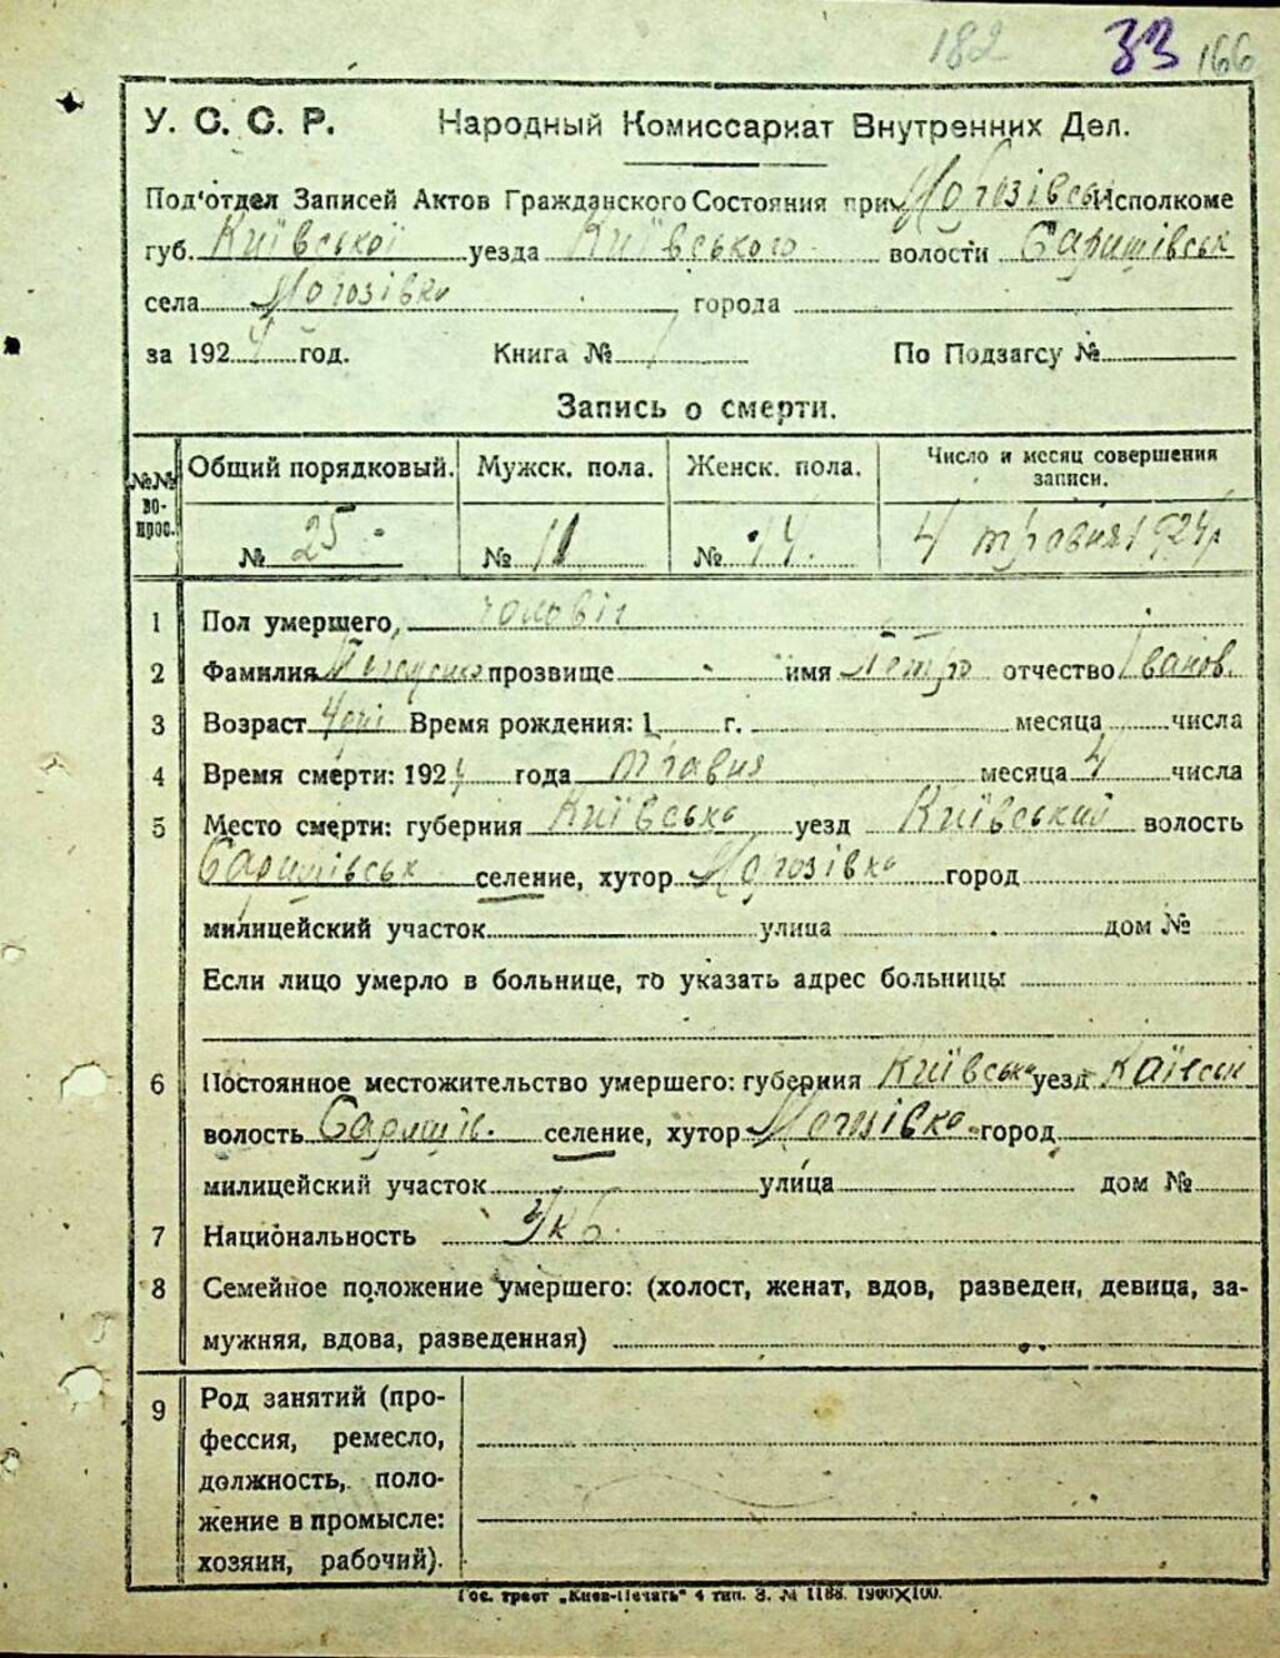 182 33 166
У. С. С. Р. Народный Комиссариат Внутренних Дел.
Под'отдел Записей Актов Гражданского Состояния при Исполкоме
губ. Київської уезда Київського волости
села Морозівка города
за 1924 год. Книга № По Подзагсу №
Запись о смерти.
№№ во- прос. Общий порядковый. Мужск. пола. Женск. пола. Число и месяц совершения записи.
№ 25 № 11 № 14. 4 травня 1924 р
1 Пол умершего, чоловіч
2 Фамилия прозвище имя Петро отчество Іванов.
3 Возраст Время рождения: 1 г. месяца числа
4 Время смерти: 1924 года травня месяца 4 числа
5 Место смерти: губерния Київська уезд Київський волость
селение, хутор Морозівка город
милицейский участок улица дом №
Если лицо умерло в больнице, то указать адрес больницы
6 Постоянное местожительство умершего: губерния Київська уезд
волость селение, хутор Морозівка город
милицейский участок улица дом №
7 Национальность Укр.
8 Семейное положение умершего: (холост, женат, вдов, разведен, девица, за-
мужняя, вдова, разведенная)
9 Род занятий (про-
фессия, ремесло,
должность, поло-
жение в промысле:
хозяин, рабочий).
Гос. трест „Киев-Печать" 4 тип. З. № 1188. 1900Х100.